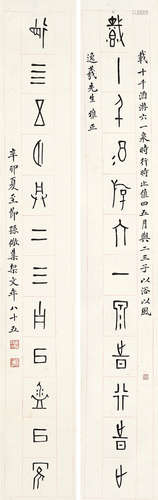 載十千酒游六一泉時行時止值四五月與二三子以浴以風
載十千酒游六一泉時行時止
逸羲先生 雅正
值四五月與二三子以浴以風
辛卯夏至節孫儆集栔文年八十五